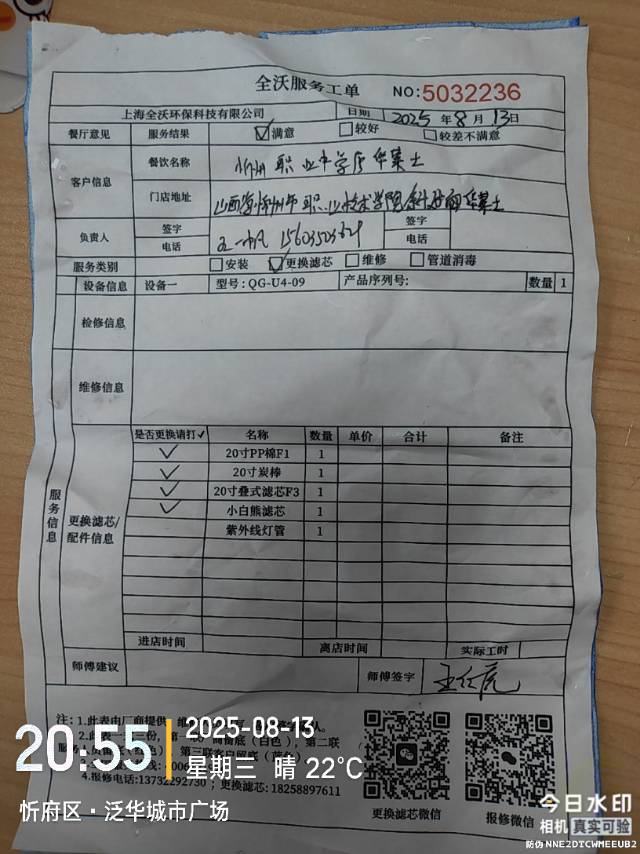 全沃服务工单 NO:5032236
上海全沃环保科技有限公司 日期 2025年8月13日
餐厅意见 服务结果 ☑满意 □较好 □较差不满意
客户信息 餐饮名称 忻州职业中学店华莱士
门店地址 山西省忻州市职业技术学院斜对面华莱士
负责人 签字 签字
电话 电话
服务类别 □安装 ☑更换滤芯 □维修 □管道消毒
设备信息 设备一 型号:QG-U4-09 产品序列号: 数量 1
检修信息
维修信息
服务信息
更换滤芯/配件信息
是否更换请打✓ 名称 数量 单价 合计 备注
✓ 20寸PP棉F1 1
✓ 20寸炭棒 1
✓ 20寸叠式滤芯F3 1
✓ 小白熊滤芯 1
紫外线灯管 1
进店时间 离店时间 实际工时
师傅建议 师傅签字
注:1.此表由厂商提供
4.报修电话:13732292730;更换滤芯:18258897611
更换滤芯微信 报修微信
20:55 2025-08-13
星期三 晴 22°C
忻府区·泛华城市广场
今日水印
相机 真实可验
防伪 NNE2DTCWMEEUB2